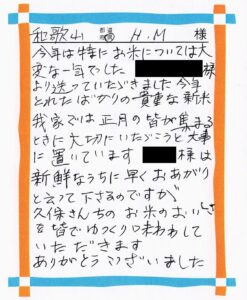 和歌山 H.M 様
今年は特にお米については大
変な一年でした 様
より送っていただきました今年
とれたばかりの貴重な新米
我家では正月の皆が集まる
ときに大切にいただこうと大事
に置いています 様は
新鮮なうちに早くおあがり
と云って下さるのですが
久保さんちのお米のおいしさ
を皆でゆっくり味わわして
いただきます
ありがとうございました